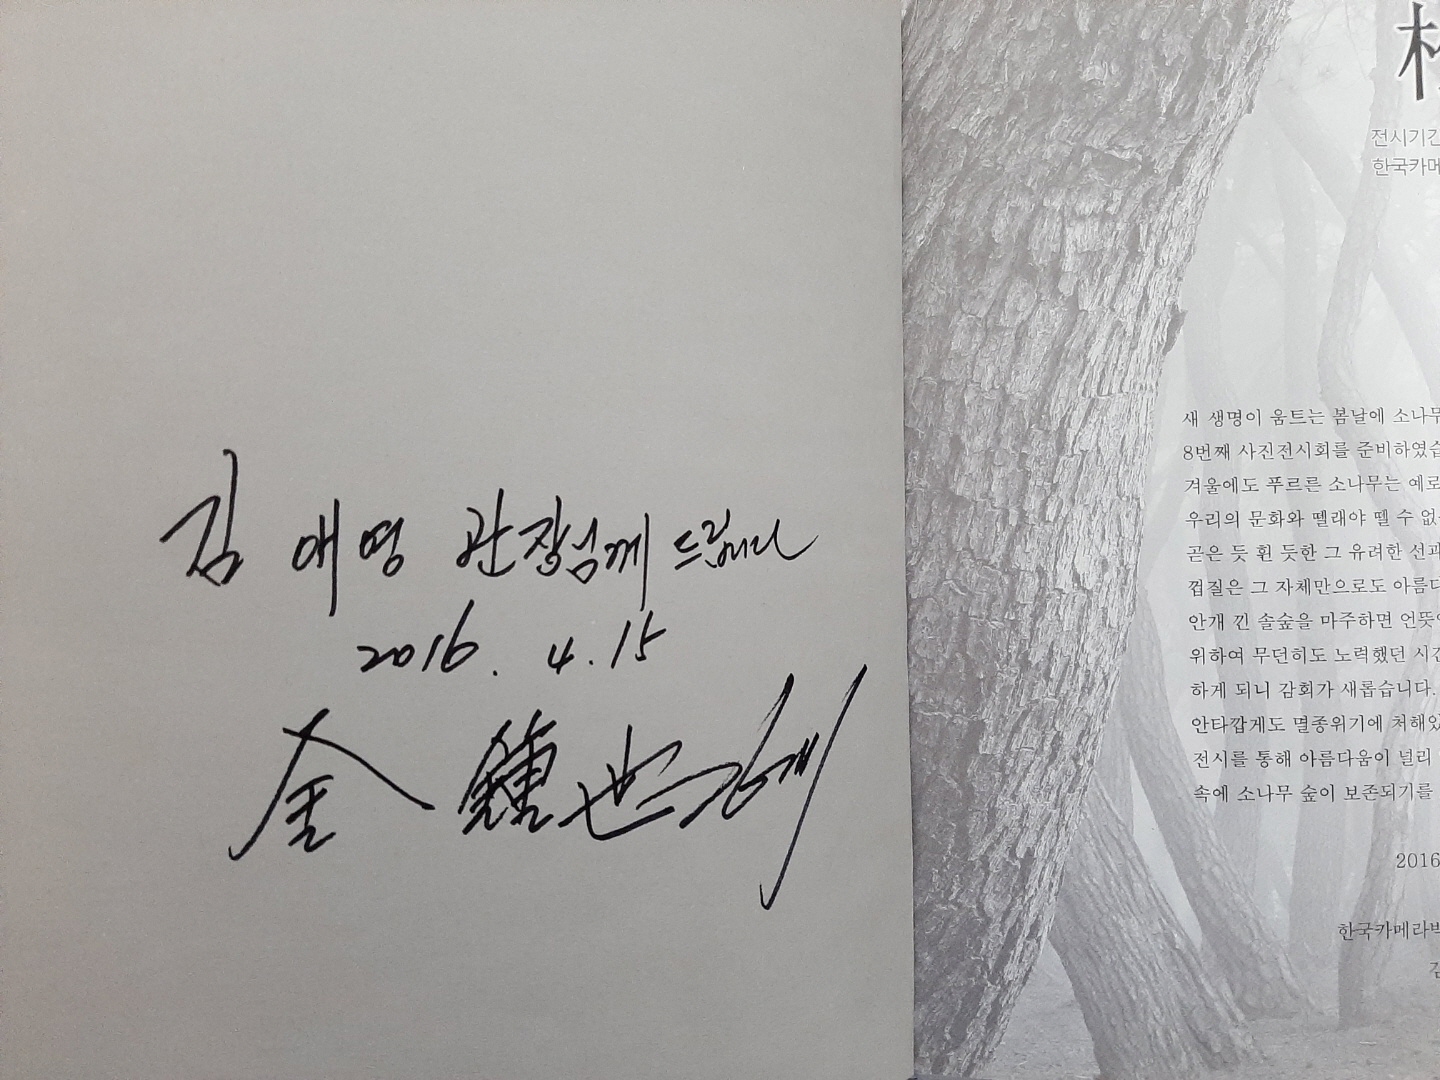 김 애영 관장님께 드립니다
2016. 4. 15
金 鍾世
전시기간
한국카메
새 생명이 움트는 봄날에 소나무
8번째 사진전시회를 준비하였습
겨울에도 푸르른 소나무는 예로
우리의 문화와 뗄래야 뗄 수 없
곧은 듯 휜 듯한 그 유려한 선과
껍질은 그 자체만으로도 아름다
안개 낀 솔숲을 마주하면 언뜻
위하여 무던히도 노력했던 시간
하게 되니 감회가 새롭습니다.
안타깝게도 멸종위기에 처해있
전시를 통해 아름다움이 널리
속에 소나무 숲이 보존되기를
2016
한국카메라박